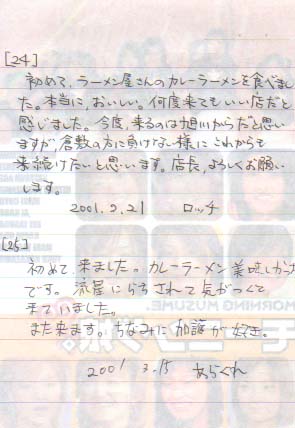 [24]
初めて、ラーメン屋さんのカレーラーメンを食べまし
た。本当に、おいしい。何度来てもいい店だと
感じました。今度、来るのは旭川からだと思い
ますが、倉敷の方に負けない様に これからも
来続けたいと思います。店長、よろしくお願い
します。
2001.2.21 ロッチ
[25]
初めて、来ました。カレーラーメン美味しかった
です。流星に らちされて気がつくと
来ていました。
また来ます。ちなみに 加護が好き。
2001 3.15 あらくれ
MORNING MUSUME.
モーニング娘。